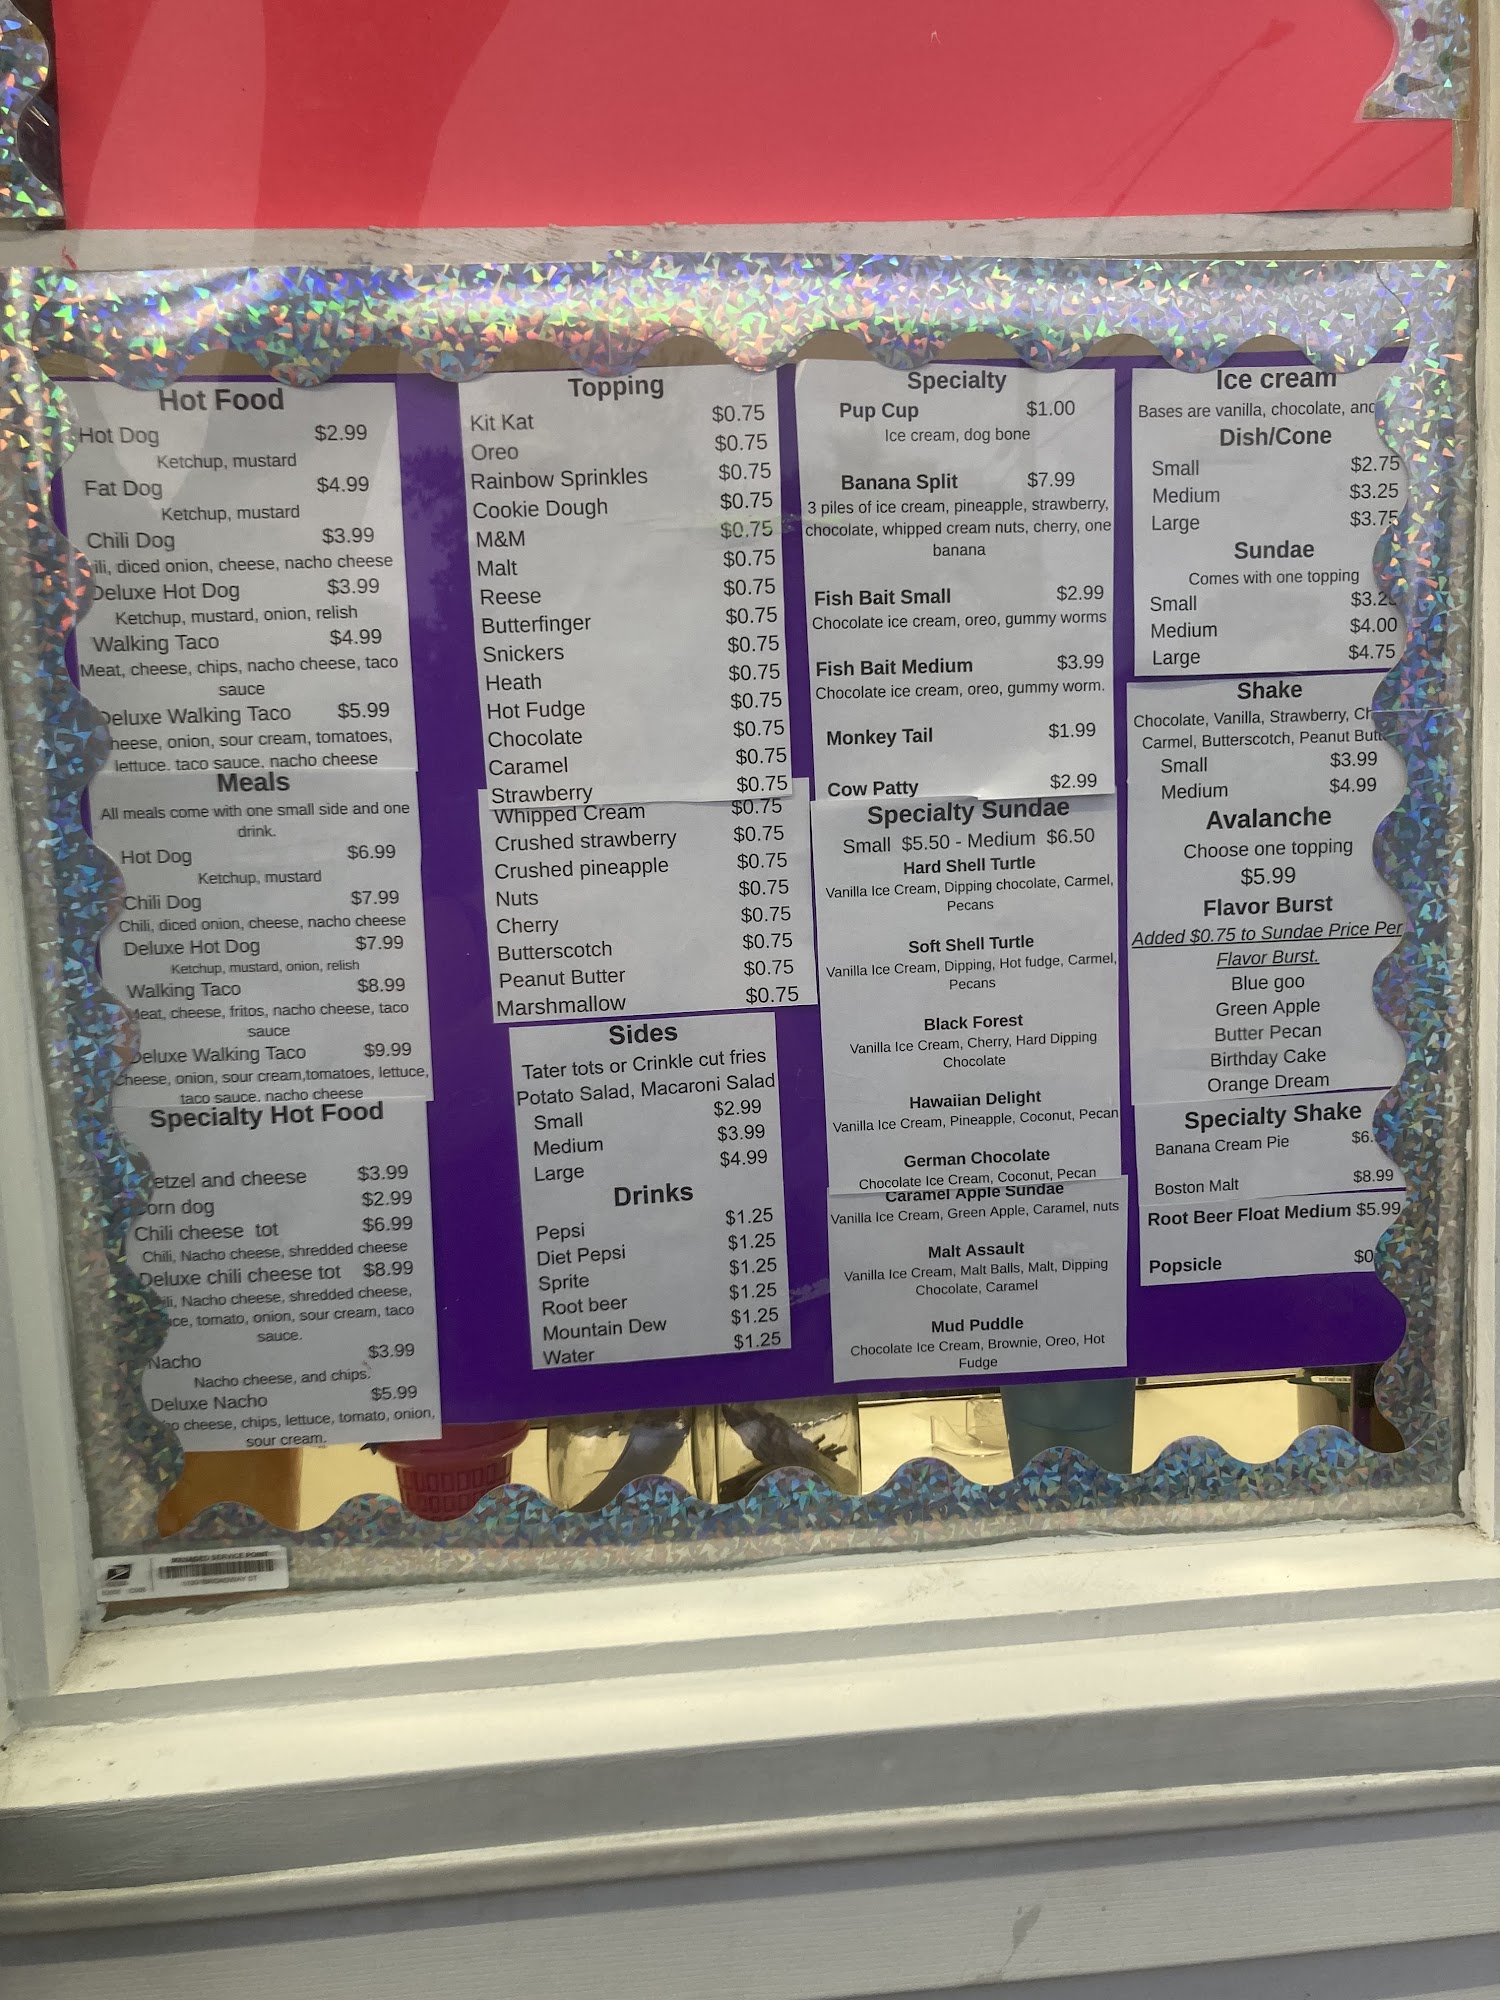 Hot Food
Hot Dog $2.99
Ketchup, mustard
Fat Dog $4.99
Ketchup, mustard
Chili Dog $3.99
diced onion, cheese, nacho cheese
Deluxe Hot Dog $3.99
Ketchup, mustard, onion, relish
Walking Taco $4.99
Meat, cheese, chips, nacho cheese, taco
sauce
Deluxe Walking Taco $5.99
onion, sour cream, tomatoes,
lettuce, taco sauce, nacho cheese
Meals
All meals come with one small side and one
drink.
Hot Dog $6.99
Ketchup, mustard
Chili Dog $7.99
Chili, diced onion, cheese, nacho cheese
Deluxe Hot Dog $7.99
Ketchup, mustard, onion, relish
Walking Taco $8.99
Meat, cheese, fritos, nacho cheese, taco
sauce
Deluxe Walking Taco $9.99
Cheese, onion, sour cream,tomatoes, lettuce,
taco sauce, nacho cheese
Specialty Hot Food
and cheese $3.99
dog $2.99
Chili cheese tot $6.99
Chili, Nacho cheese, shredded cheese
Deluxe chili cheese tot $8.99
Nacho cheese, shredded cheese,
tomato, onion, sour cream, taco
sauce.
Nacho $3.99
Nacho cheese, and chips.
Deluxe Nacho $5.99
cheese, chips, lettuce, tomato, onion,
sour cream.
Topping
Kit Kat $0.75
Oreo $0.75
Rainbow Sprinkles $0.75
Cookie Dough $0.75
M&M $0.75
Malt $0.75
Reese $0.75
Butterfinger $0.75
Snickers $0.75
Heath $0.75
Hot Fudge $0.75
Chocolate $0.75
Caramel $0.75
Strawberry $0.75
Whipped Cream $0.75
Crushed strawberry $0.75
Crushed pineapple $0.75
Nuts $0.75
Cherry $0.75
Butterscotch $0.75
Peanut Butter $0.75
Marshmallow $0.75
Sides
Tater tots or Crinkle cut fries
Potato Salad, Macaroni Salad
Small $2.99
Medium $3.99
Large $4.99
Drinks
Pepsi $1.25
Diet Pepsi $1.25
Sprite $1.25
Root beer $1.25
Mountain Dew $1.25
Water $1.25
Specialty
Pup Cup $1.00
Ice cream, dog bone
Banana Split $7.99
3 piles of ice cream, pineapple, strawberry,
chocolate, whipped cream nuts, cherry, one
banana
Fish Bait Small $2.99
Chocolate ice cream, oreo, gummy worms
Fish Bait Medium $3.99
Chocolate ice cream, oreo, gummy worm.
Monkey Tail $1.99
Cow Patty $2.99
Specialty Sundae
Small $5.50 - Medium $6.50
Hard Shell Turtle
Vanilla Ice Cream, Dipping chocolate, Carmel,
Pecans
Soft Shell Turtle
Vanilla Ice Cream, Dipping, Hot fudge, Carmel,
Pecans
Black Forest
Vanilla Ice Cream, Cherry, Hard Dipping
Chocolate
Hawaiian Delight
Vanilla Ice Cream, Pineapple, Coconut, Pecan
German Chocolate
Chocolate Ice Cream, Coconut, Pecan
Caramel Apple Sundae
Vanilla Ice Cream, Green Apple, Caramel, nuts
Malt Assault
Vanilla Ice Cream, Malt Balls, Malt, Dipping
Chocolate, Caramel
Mud Puddle
Chocolate Ice Cream, Brownie, Oreo, Hot
Fudge
Ice cream
Bases are vanilla, chocolate, and
Dish/Cone
Small $2.75
Medium $3.25
Large $3.75
Sundae
Comes with one topping
Small
Medium $4.00
Large $4.75
Shake
Chocolate, Vanilla, Strawberry,
Carmel, Butterscotch, Peanut
Small $3.99
Medium $4.99
Avalanche
Choose one topping
$5.99
Flavor Burst
Added $0.75 to Sundae Price Per
Flavor Burst.
Blue goo
Green Apple
Butter Pecan
Birthday Cake
Orange Dream
Specialty Shake
Banana Cream Pie
Boston Malt $8.99
Root Beer Float Medium $5.99
Popsicle
MANAGED SERVICE POINT